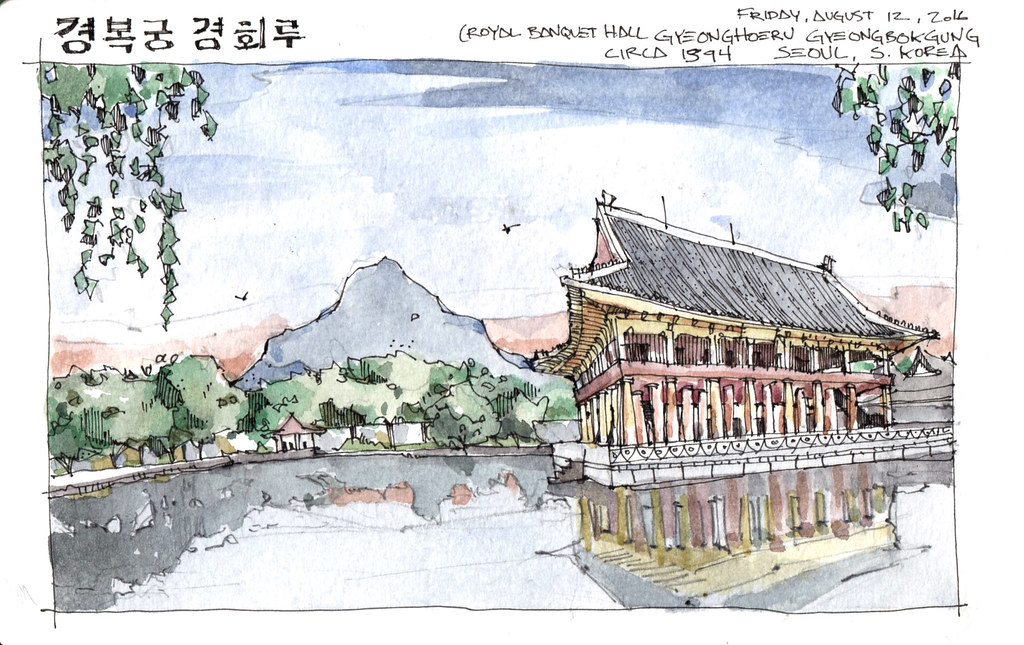 경복궁 경회루
FRIDAY, AUGUST 12, 2016
(ROYAL BANQUET HALL GYEONGHOERU GYEONGBOKGUNG
CIRCA 1394 SEOUL, S. KOREA